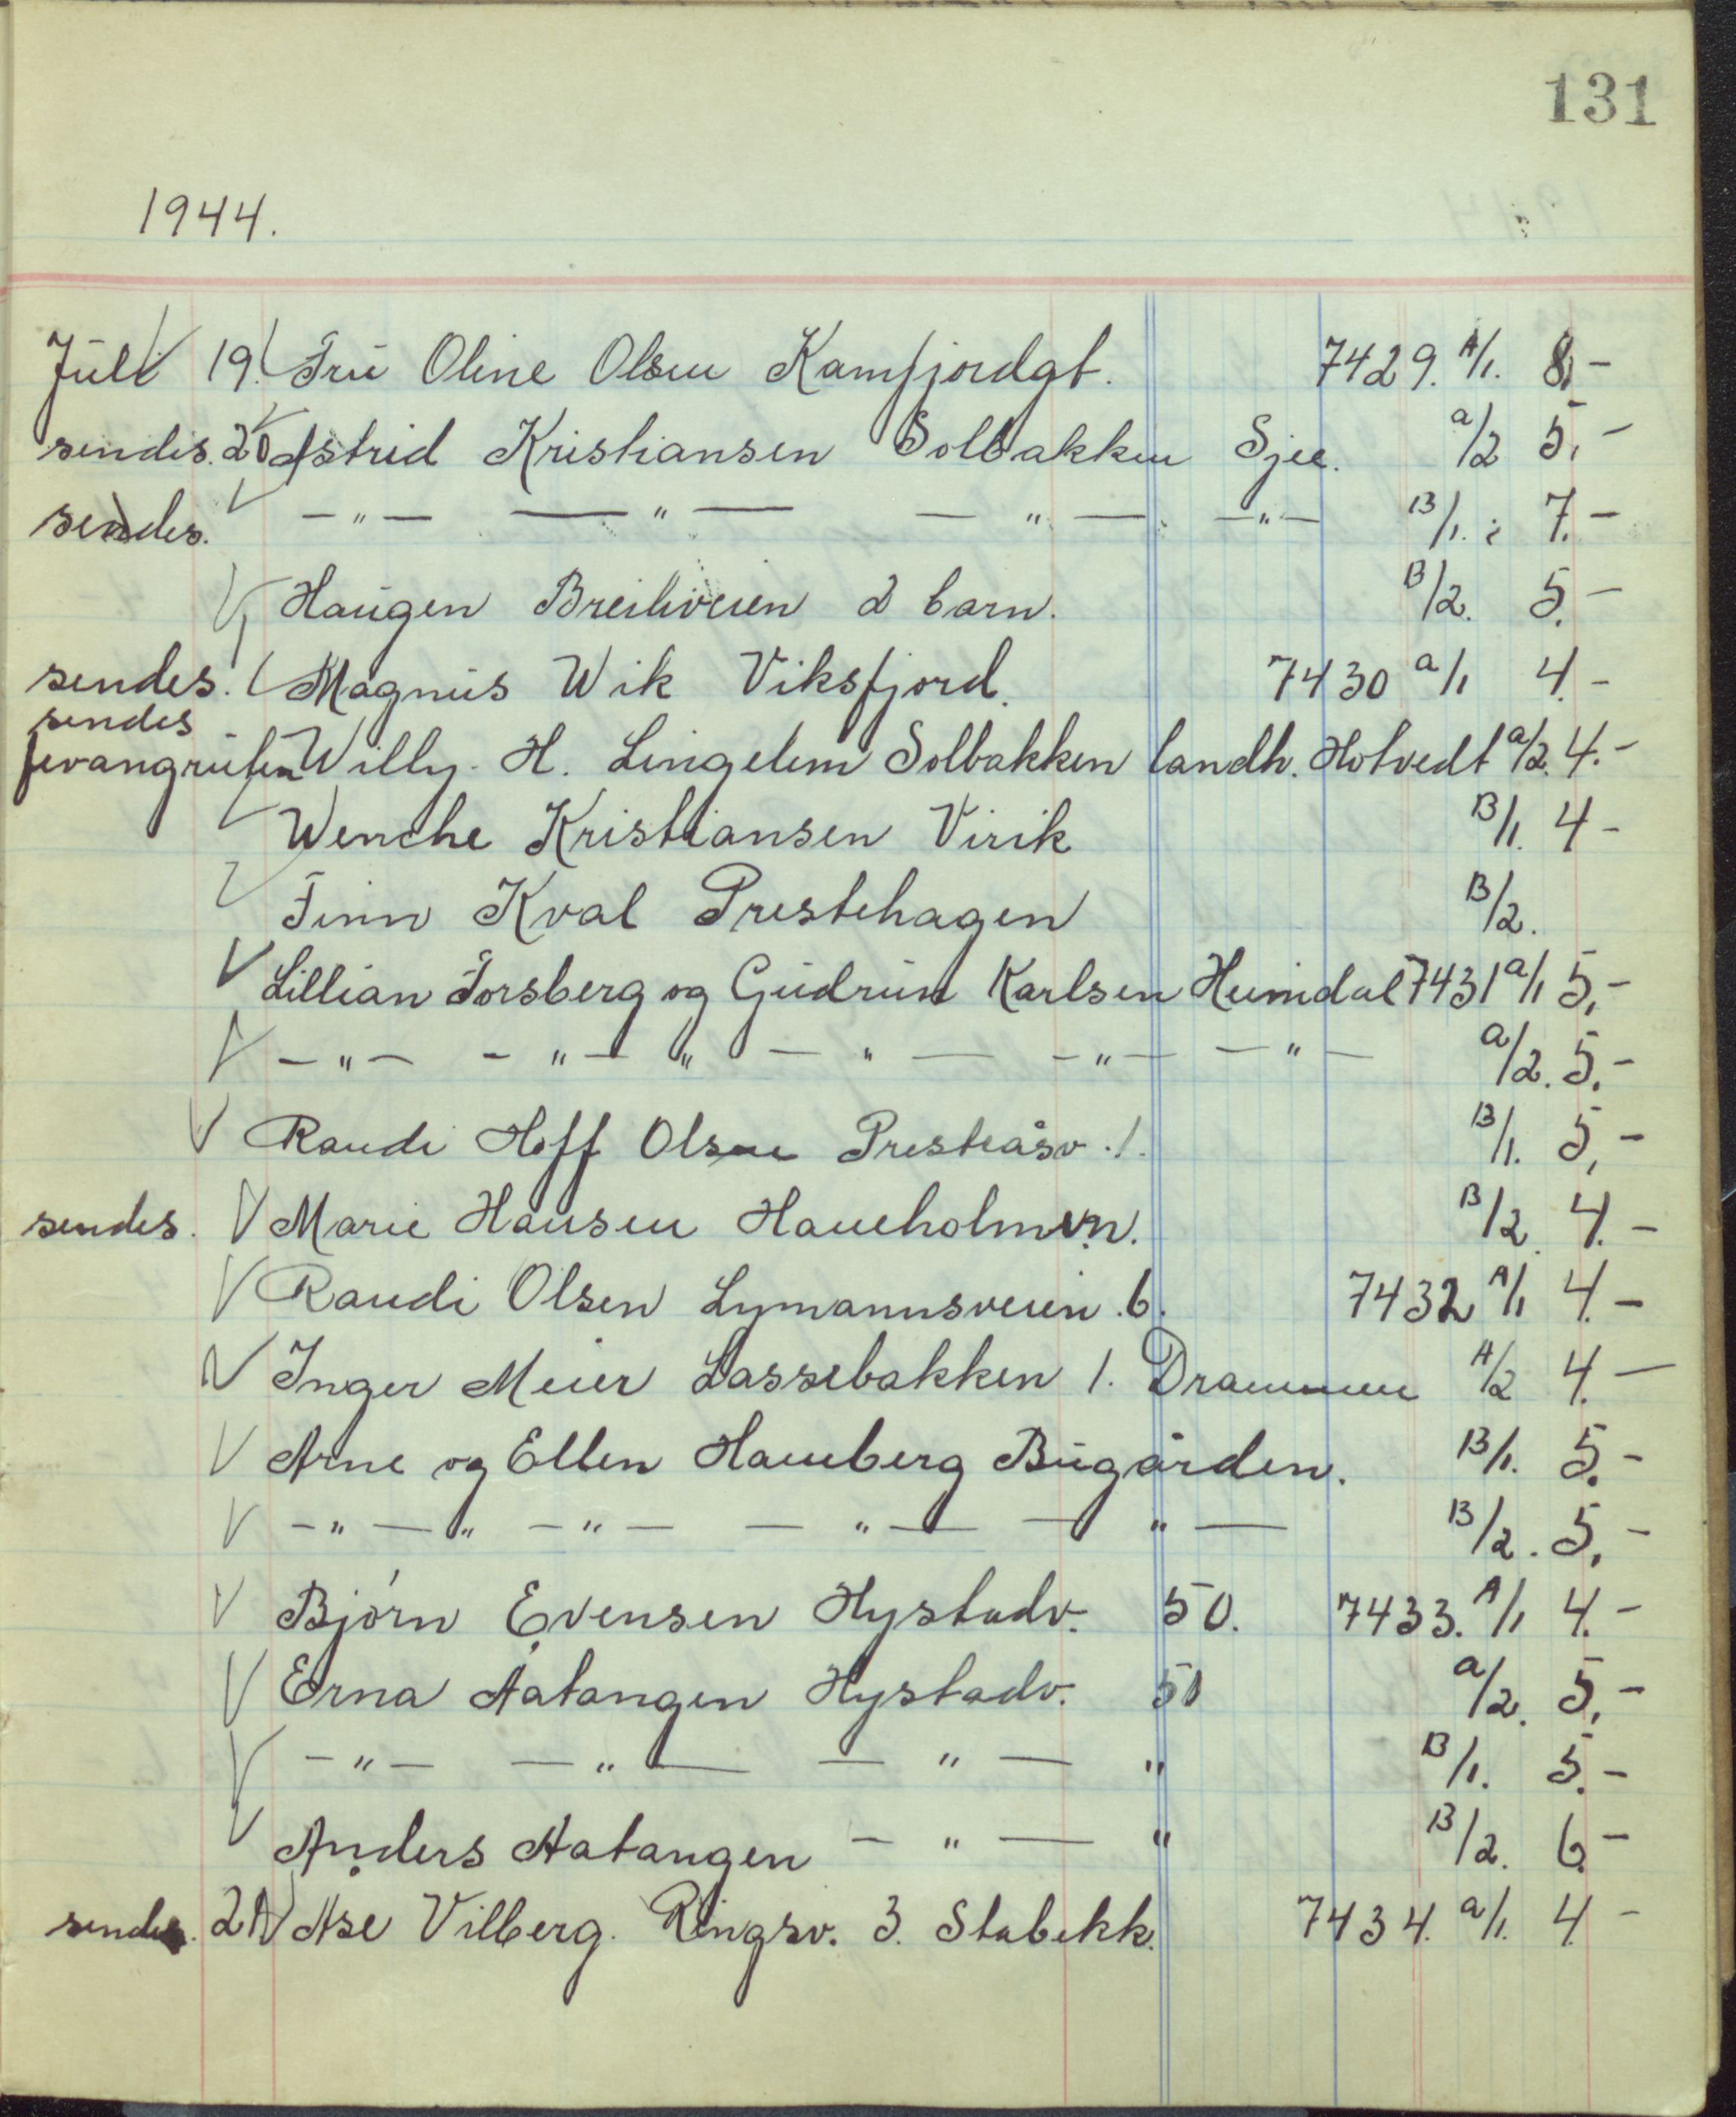 131
1944.
Juli 19. Fru Oline Olsen Kamfjordgt. 7429. A/1. 8,-
sendes. 20 Astrid Kristiansen Solbakken Sjee. a/2 5,-
sendes. -"- -"- -"- -"- B/1. 7.-
Haugen Breidveien 2 barn. B/2. 5.-
sendes. Magnus Wik Viksfjord. 7430 a/1 4.-
sendes
Willy. H. Lingelem Solbakken landh. Hotvedt a/2. 4.-
Wenche Kristiansen Virik B/1. 4-
Finn Kval Prestehagen B/2.
Lillian Forsberg og Gudrun Karlsen Heimdal 7431 a/1 5,-
-"- -"- " -"- -"- -"- a/2. 5.-
Randi Hoff Olsen Presteåsv. 1. B/1. 5,-
sendes. Marie Hansen Haneholmen. B/2. 4.-
Randi Olsen Lymannsveien. 6. 7432 A/1 4.-
Inger Meier Lassebakken 1. Drammen A/2 4.-
Arne og Ellen Hamberg Bugården. B/1. 5.-
-"- " -"- -"- -"- B/2. 5,-
Bjørn Evensen Hystadv. 50. 7433. A/1 4.-
Erna Aatangen Hystadv. 50 a/2. 5,-
-"- -"- -"- " B/1. 5.-
Anders Aatangen -"- " B/2. 6.-
sendes. 21 Åse Vilberg. Ringsv. 3. Stabekk. 7434. a/1. 4.-